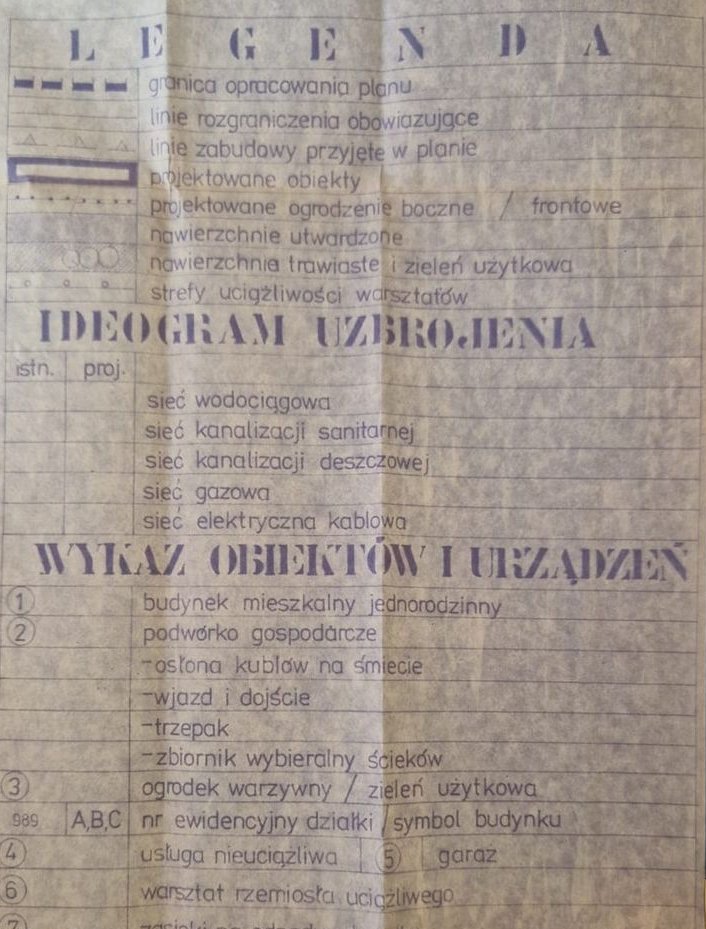 LEGENDA
granica opracowania planu
linie rozgraniczenia obowiazujące
linie zabudowy przyjęte w planie
projektowane obiekty
projektowane ogrodzenie boczne / frontowe
nawierzchnie utwardzone
nawierzchnie trawiaste i zieleń użytkowa
strefy uciążliwości warsztatów
IDEOGRAM UZBROJENIA
istn. proj.
sieć wodociągowa
sieć kanalizacji sanitarnej
sieć kanalizacji deszczowej
sieć gazowa
sieć elektryczna kablowa
WYKAZ OBIEKTÓW I URZĄDZEŃ
1 budynek mieszkalny jednorodzinny
2 podwórko gospodarcze
-osłona kubłów na śmiecie
-wjazd i dojście
-trzepak
-zbiornik wybieralny ścieków
3 ogrodek warzywny / zieleń użytkowa
989 A,B,C nr ewidencyjny działki / symbol budynku
4 usługa nieuciążliwa 5 garaż
6 warsztat rzemiosła uciążliwego
7